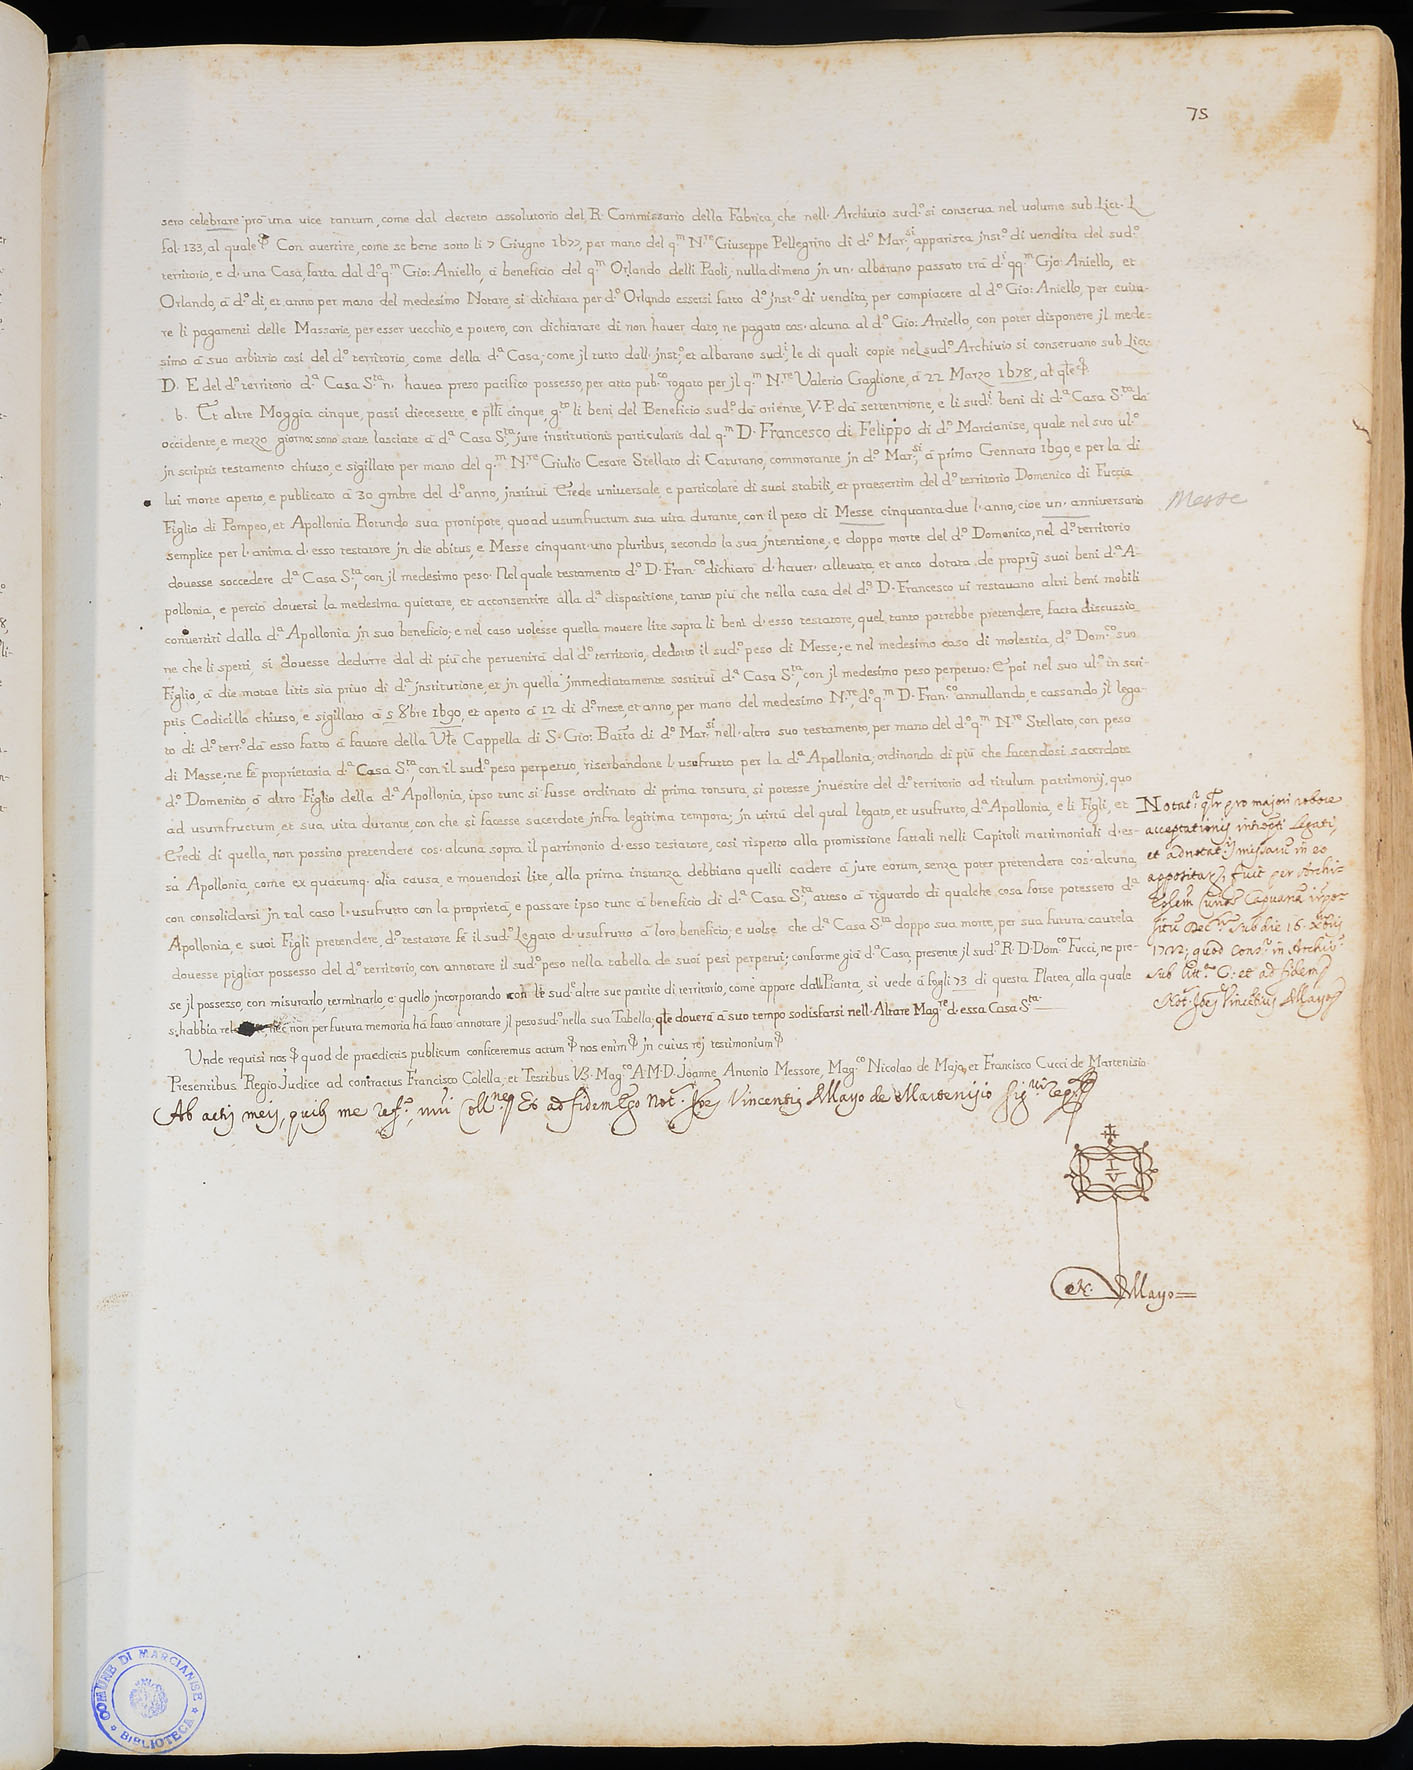 75
sero celebrare pro una vice tantum, come dal decreto assolutorio del R. Commissario della Fabrica, che nell' Archivio sud.º si conserva nel volume sub Lict. L
fol. 133, al quale Con avertire, come se bene sotto li 7 Giugno 1677, per mano del q.m N.re Giuseppe Pellegrino di d.º Mar.si, apparisca jnst.º di vendita del sud.º
territorio, e d'una Casa, fatta dal d.º q.m Gio: Aniello, à beneficio del q.m Orlando delli Paoli, nulladimeno jn un' albarano passato trà d.i qq.m Gio: Aniello, et
Orlando, à d.º dì, et anno per mano del medesimo Notare, si dichiara per d.º Orlando essersi fatto d.º jnst.º di vendita, per compiacere al d.º Gio: Aniello, per evita-
re li pagamenti delle Massarie, per esser vecchio, e povero, con dichiarare di non haver dato, ne pagato cos' alcuna al d.º Gio: Aniello, con poter disponere jl mede-
simo à suo arbitrio così del d.º territorio, come della d.a Casa, come jl tutto dall' jnst.º, et albarano sud.i, le di quali copie nel sud.º Archivio si conservano sub Lict.
D. E del d.º territorio d.a Casa S.ta n' havea preso pacifico possesso, per atto pub.co rogato per jl q.m N.re Valerio Gaglione, à 22 Marzo 1678, al qle
6. Et altre Moggia cinque, passi diecesette, e p̄ti cinque, g.to li beni del Beneficio sud.º da oriente, V. P. dà settentrione, e li sud.i beni di d.a Casa S.ta dà
occidente, e mezzo giorno; sono state lasciate à d.a Casa S.ta, jure institutionis particularis dal q.m D. Francesco di Felippo di d.º Marcianise, quale nel suo ul.º
jn scriptis testamento chiuso, e sigillato per mano del q.m N.re Giulio Cesare Stellato di Caturano, commorante jn d.º Mar.si, à primo Gennaro 1690, e per la di
lui morte aperto, e publicato à 30 9mbre del d.º anno, jnstituì Erede universale, e particolare di suoi stabili, et praesertim del d.º territorio Domenico di Fuccia
Figlio di Pompeo, et Apollonia Rotundo sua pronipote, quoad usumfructum sua vita durante, con il peso di Messe cinquantadue l'anno, cioe un' anniversario
Messe
semplice per l'anima d'esso testatore jn die obitus, e Messe cinquant'uno pluribus, secondo la sua jntentione, e doppo morte del d.º Domenico, nel d.º territorio
dovesse soccedere d.a Casa S.ta, con jl medesimo peso. Nel quale testamento d.º D. Fran.co dichiarò d'haver' allevata, et anco dotata de proprij suoi beni d.a A-
pollonia, e perciò doversi la medesima quietare, et acconsentire alla d.a dispositione, tanto più che nella casa del d.º D. Francesco vi restavano altri beni mobili
convertiti dalla d.a Apollonia jn suo beneficio; e nel caso volesse quella movere lite sopra li beni d'esso testatore, quel tanto potrebbe pretendere, facta discussio-
ne che li spetti, si dovesse dedurre dal di più che pervenirà dal d.º territorio, dedotto il sud.º peso di Messe; e nel medesimo caso di molestia, d.º Dom.co suo
Figlio, à die motae litis sia privo di d.a jnstitutione, et jn quella jmmediatamente sostituì d.a Casa S.ta, con jl medesimo peso perpetuo: E poi nel suo ul.º in scri-
ptis Codicillo chiuso, e sigillato à 5 8bre 1690, et aperto à 12 di d.º mese, et anno, per mano del medesimo N.re, d.º q.m D. Fran.co annullando, e cassando jl lega-
to di d.º terr.º dà esso fatto à favore della Vłe Cappella di S. Gio: Batta di d.º Mar.si nell' altro suo testamento, per mano del d.º q.m N.re Stellato, con peso
di Messe, ne fè proprietaria d.a Casa S.ta, con il sud.º peso perpetuo, riserbandone l'usufrutto per la d.a Apollonia, ordinando di più che facendosi sacerdote
d.º Domenico, ò altro Figlio della d.a Apollonia, ipso tunc si fusse ordinato di prima tonsura, si potesse jnvestire del d.º territorio ad titulum patrimonij, quo
ad usumfructum, et sua vita durante, con che si facesse sacerdote infra legitima tempora; jn virtù del qual legato, et usufrutto, d.a Apollonia, e li Figli, et
Eredi di quella, non possino pretendere cos' alcuna sopra il patrimonio d'esso testatore, così rispetto alla promissione fattali nelli Capitoli matrimoniali d'es-
sa Apollonia, come ex quacumq. alia causa, e movendosi lite, alla prima instanza debbiano quelli cadere à jure eorum, senza poter pretendere cos' alcuna,
con consolidarsi jn tal caso l'usufrutto con la proprietà, e passare ipso tunc à beneficio di d.a Casa S.ta, atteso à riguardo di qualche cosa forse potessero d.a
Apollonia, e suoi Figli pretendere, d.º testatore fè il sud.º Legato d'usufrutto à loro beneficio; e volse che d.a Casa S.ta doppo sua morte, per sua futura cautela
dovesse pigliar possesso del d.º territorio, con annotare il sud.º peso nella tabella de suoi pesi perpetui; conforme già d.a Casa, presente jl sud.º R. D. Dom.co Fucci, ne pre-
se jl possesso, con misurarlo, terminarlo, e quello jncorporando con le sud.e altre sue partite di territorio, come appare dalla Pianta, si vede à fogli 73 di questa Platea, alla quale
s'habbia nec non per futura memoria hà fatto annotare jl peso sud.º nella sua Tabella, qłe doverà à suo tempo sodisfarsi nell' Altare Mag.re d'essa Casa S.ta
Unde requisiti nos quod de praedictis publicum conficeremus actum nos enim jn cuius rej testimonium
Presentibus Regio Judice ad contractus Francisco Colella, et Testibus V3. Mag.co A. M. D. Joanne Antonio Messore, Mag.co Nicolao de Majo, et Francisco Cucci de Martenisio
Ab actis meis, quibus me Et ad fidem Ego Not.r Joes Vincentius Mayo de Martenisio sig.vi
Notat.r qłr pro majori robore
acceptationis Legati,
et adnotat.
appositar. fuit per Archi-
Capuanu
Dec. sub die 16. Xbris
1712; quod Cons.r in Archiv.
sub litt.a C: et ad fidem
Not.r Joes Vincentius Mayo
N. Mayo
COMUNE DI MARCIANISE
BIBLIOTECA